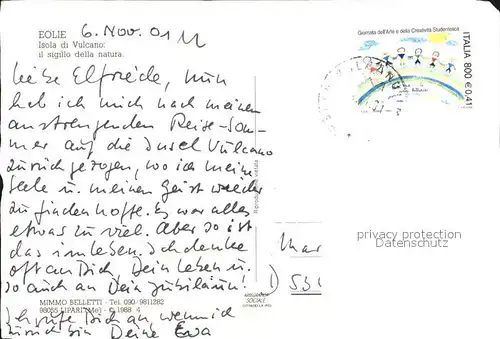 EOLIE
Isola di Vulcano:
il sigillo della natura.
6. Nov. 01
Liebe Elfriede, nun
hab ich mich nach meinem
anstrengenden Reise-Som-
mer auf die Insel Vulcano
zurückgezogen, wo ich meine
Seele u. meinen Geist wieder
zu finden hoffe. Es war alles
etwas zu viel. Aber so ist
das im Leben. Ich denke
oft an Dich, Dein Leben u.
so auch an Dein Jubiläum!
Ich rufe Dich an wenn ich
zurück bin Deine Ewa
MIMMO BELLETTI - Tel. 090/9811282
98055 LIPARI (Me) - © 1988 4
Riproduzione vietata
Giornata dell'Arte e della Creatività Studentesca
ITALIA 800 €0,41
Mar
D 53
privacy protection
Datenschutz